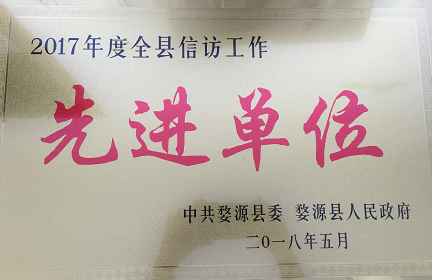 2017年度全县信访工作
先进单位
中共婺源县委 婺源县人民政府
二〇一八年五月